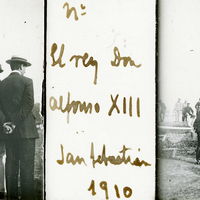 Nº
El rey Don
alfonso XIII
San Sebastián
1910